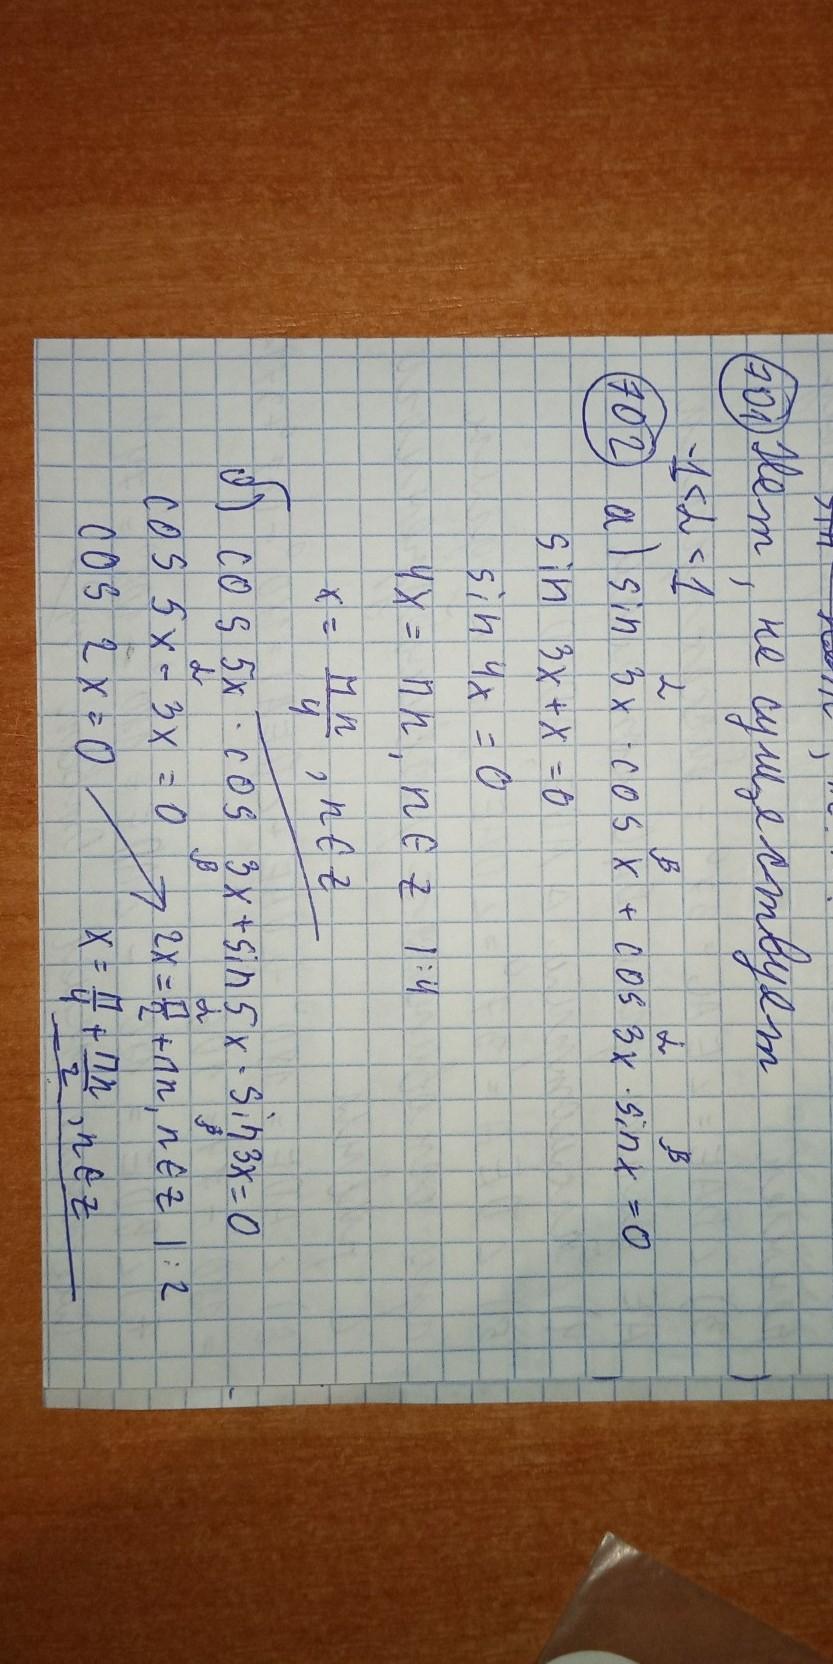 701 Нет, не существует
-1<α<1
702 а) sin 3x · cos x + cos 3x · sin x = 0
α β α β
sin 3x+x=0
sin 4x=0
4x= πn, n∈z |:4
x= πn/4, n∈z
б) cos 5x · cos 3x + sin 5x · sin 3x=0
α β α β
cos 5x - 3x = 0
cos 2x=0
2x= π/2 +πn, n∈z |:2
x= π/4 + πn/2, n∈z